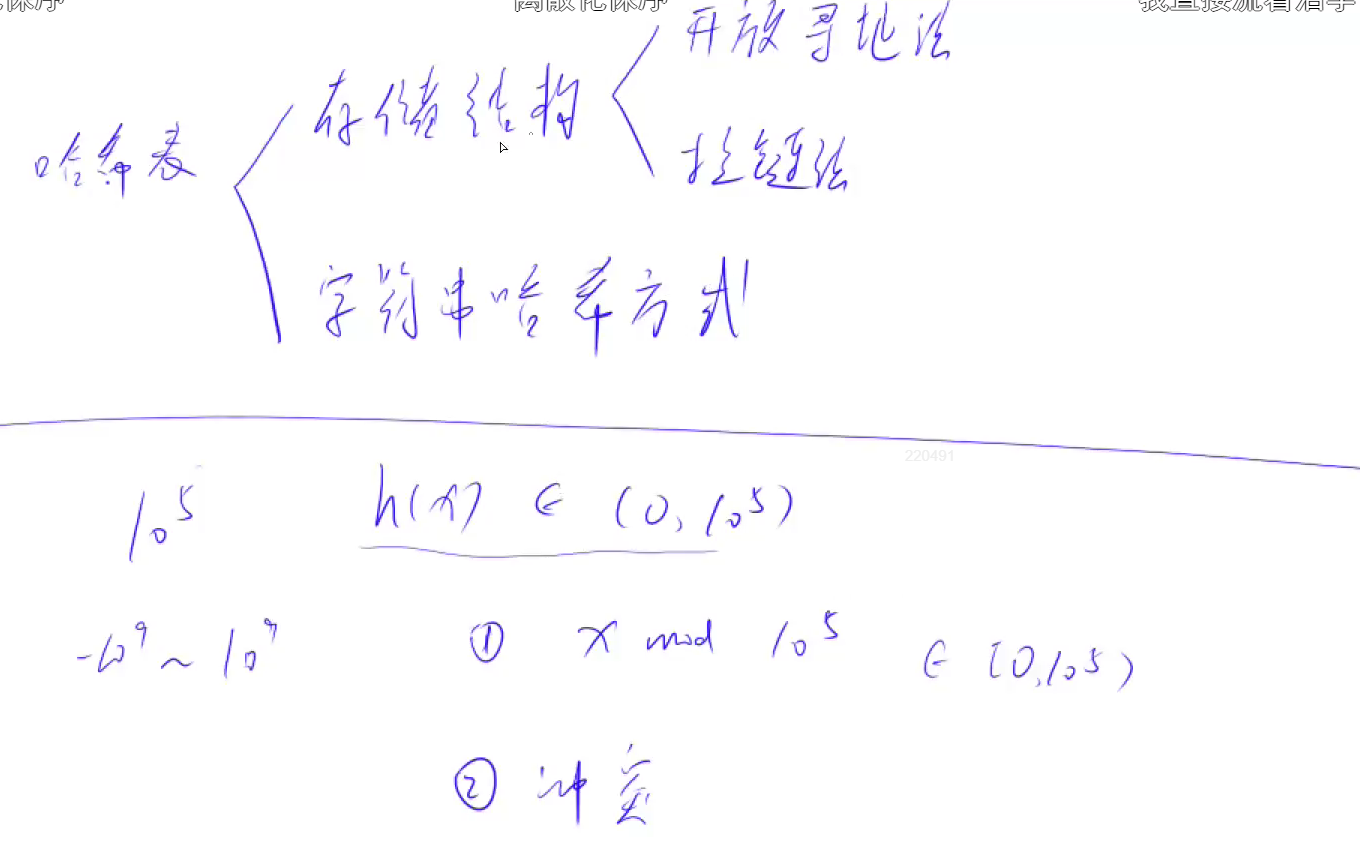 离散化保序
开放寻地法
存储结构
哈希表
拉链法
字符串哈希方式
220491
10^5 h(x) ∈ (0, 10^5)
-10^9 ~ 10^9 ① x mod 10^5 ∈ [0, 10^5)
② 冲突